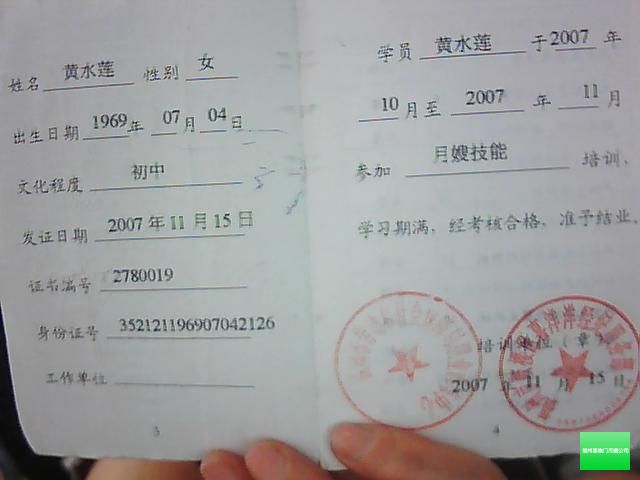 姓名 黄水莲 性别 女
出生日期 1969年 07月 04日
文化程度 初中
发证日期 2007年11月15日
证书编号 2780019
身份证号 352121196907042126
工作单位
3
学员 黄水莲 于2007年
10月至 2007 年 11月
参加 月嫂技能 培训、
学习期满、经考核合格、准予结业。
培训单位(章)
2007 年 11 月 15日
4